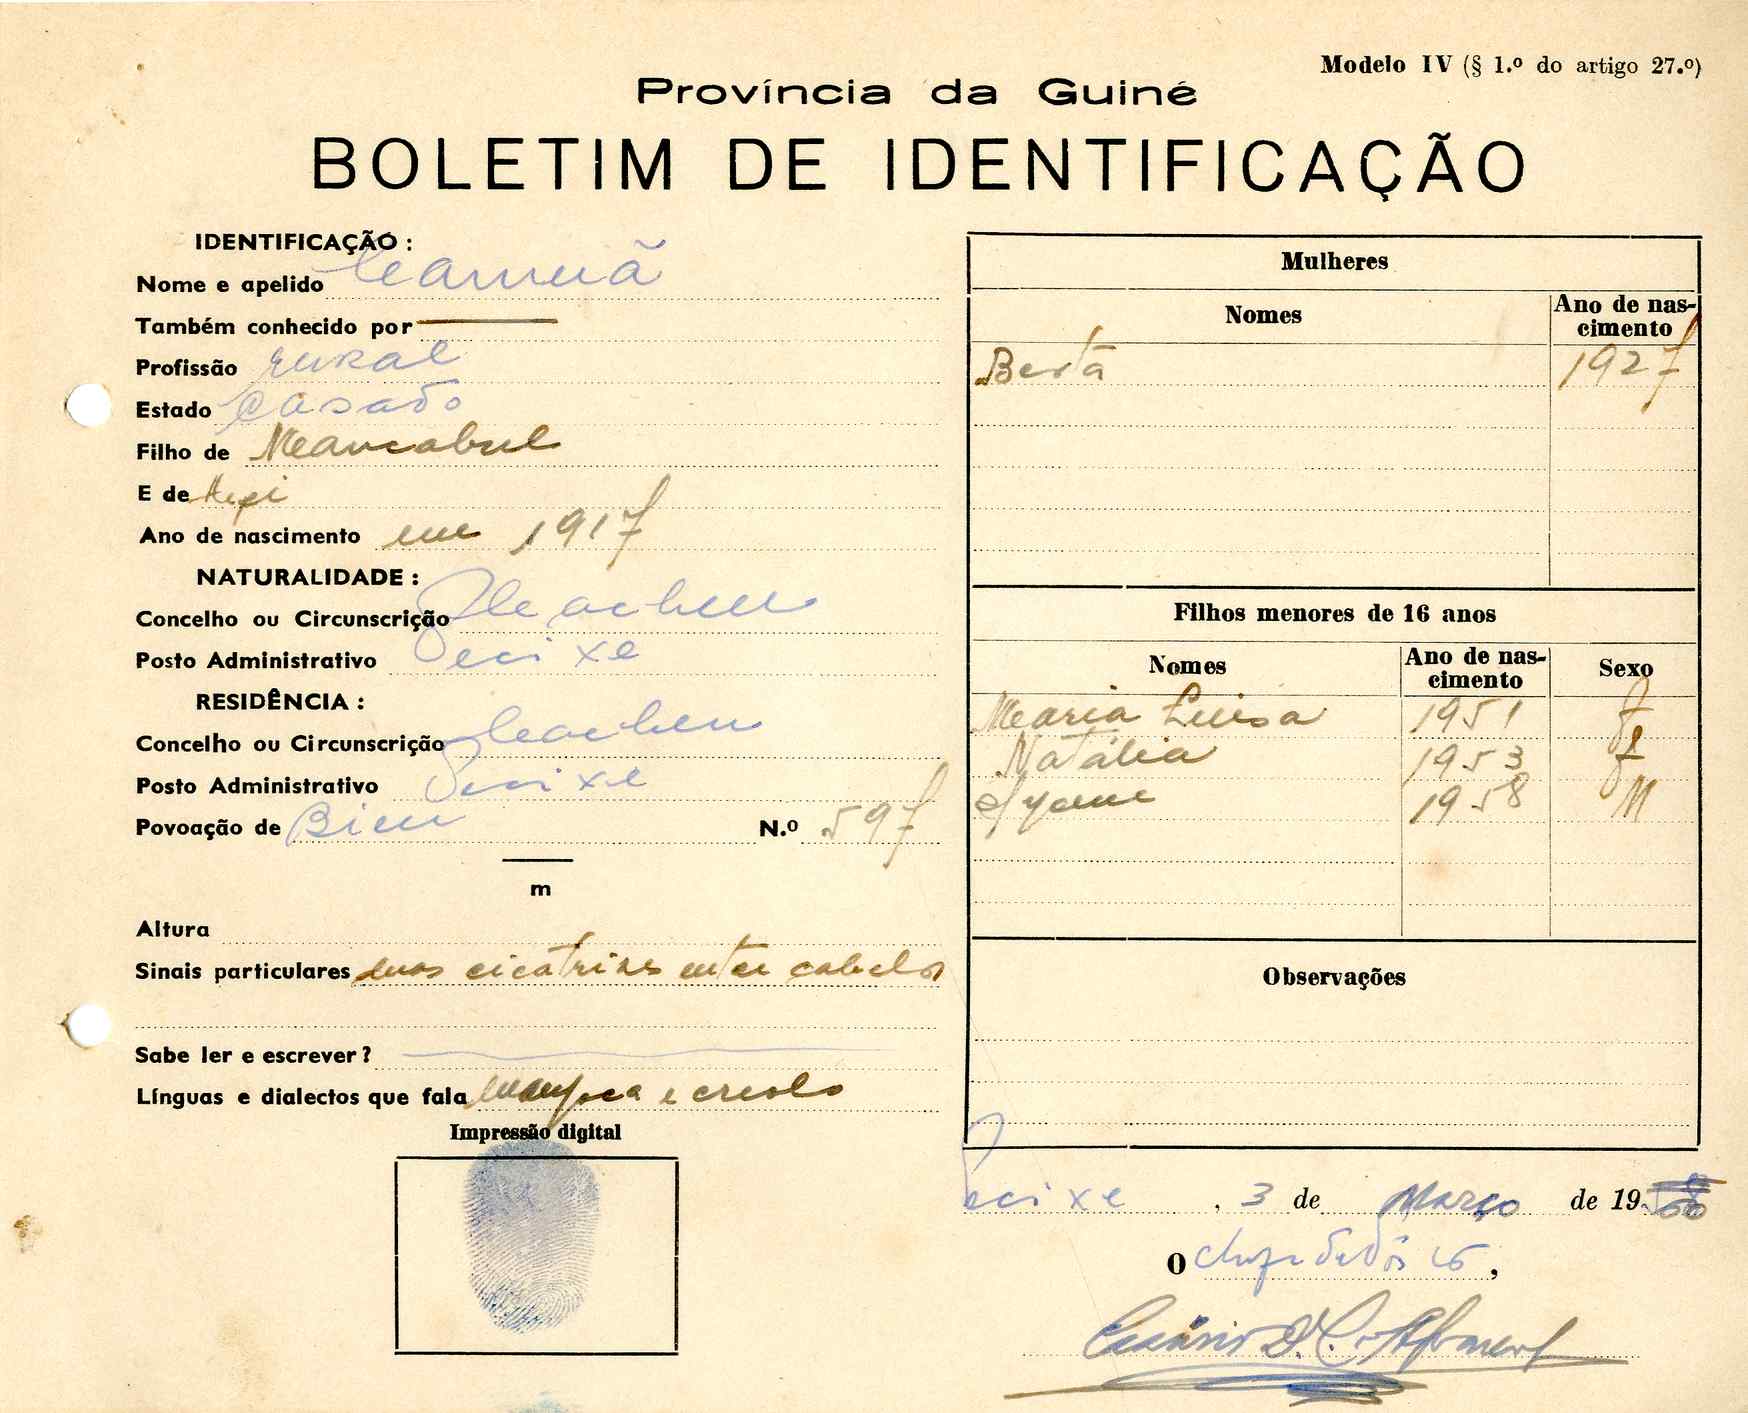 Modelo IV (§ 1.º do artigo 27.º)
Província da Guiné
BOLETIM DE IDENTIFICAÇÃO
IDENTIFICAÇÃO :
Nome e apelido
Também conhecido por
Profissão rural
Estado Casado
Filho de
E de
Ano de nascimento em 1917
NATURALIDADE :
Concelho ou Circunscrição
Posto Administrativo
RESIDÊNCIA :
Concelho ou Circunscrição
Posto Administrativo
Povoação de N.º 597
m
Altura
Sinais particulares duas cicatrizes entre cabelos
Sabe ler e escrever ?
Línguas e dialectos que fala e creolo
Impressão digital
Mulheres
Nomes Ano de nas-
cimento
Berta 1927
Filhos menores de 16 anos
Nomes Ano de nas-
cimento Sexo
Maria Luisa 1951 F
Natália 1953 F
1958 M
Observações
, 3 de Março de 19
O ,